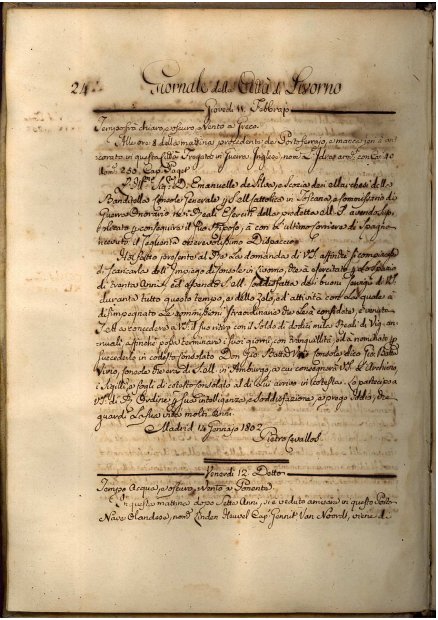 24
Giornale della Città di Livorno
Giovedi 11. Febbrajo
Tempo frà chiaro, e oscuro, e Vento a Greco.
Alle ore 8 della mattina procedente da Portoferrajo, e mancazion
corato in questa una Fregata in Guerra Inglese nom.ª con Ca: 40
250. Cap.
Sig.r D. Emanuelle de Silva, e dei Marchesi della
Banditella Console Generale di S. M. Cattolica in Toscana, e Commissario di
Guerra Onorario nei Reali Eserciti della prodetta M. S. avendo
e conseguita il suo Ritiro, à con l'ultimo Corriere di Spagna
ricevuto il seguente onorevolissimo Dispaccio
Hò fatto presente al Rè la domanda di V. S. affinchè si
di scaricarla dell'Impiego di Console in Livorno, che à esercitato
di Trenta Anni, ed essendo S. M. soddisfatta dei buoni servigi di V. S.
durante tutto questo tempo, e dello Zelo, ed attività con la quale à
disimpegnato le commissioni straordinarie che le à confidate; è venuta
S. M. a concedere a V. S. il suo ritiro con il Soldo di dodici mila Reali di
annuali affinchè possa terminare i suoi giorni con tranquillità, ed à nominato per
succederle in cotesto Consolato Don Gio: Batta
Virio, Console che era di S. M. in Amburgo, a cui consegnerà V. S. l'Archivio,
i Sigilli, e fogli di cotesto Consolato al di lui arrivo in cotesta. La partecipo a
V. S. di R. Ordine per sua intelligenza, e soddisfazione, e prego Iddio, che
guardi la sua vita molti Anni.
Madrid 14 Gennajo 1802
Pietro Cevallos
Venerdì 12. Detto
Tempo Acqua, e oscuro, Vento a Ponente.
In questa mattina dopo Sette Anni, si è veduto arrivare in questo Porto
Nave Olandese, nom.ª Linden Heuvel Cap. Gerrit Van Noordt, viene di